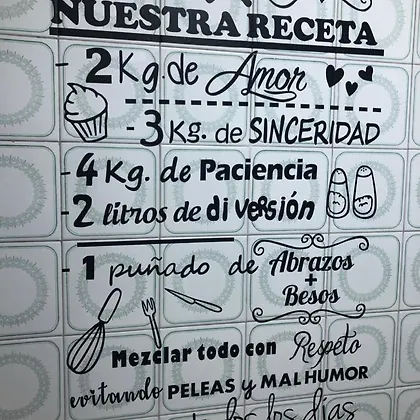 NUESTRA RECETA
- 2 Kg. de Amor
- 3 Kg. de SINCERIDAD
- 4 Kg. de Paciencia
- 2 litros de diversión
- 1 puñado de Abrazos
+
Besos
Mezclar todo con Respeto
evitando PELEAS y MALHUMOR
los días